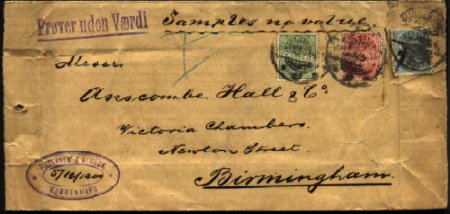 Prøver uden Værdi
Samples no value.
Messrs
Anscombe Hall & Co.
Victoria Chambers.
Newton Street.
Birmingham.
5/12/1900
KJØBENHAVN